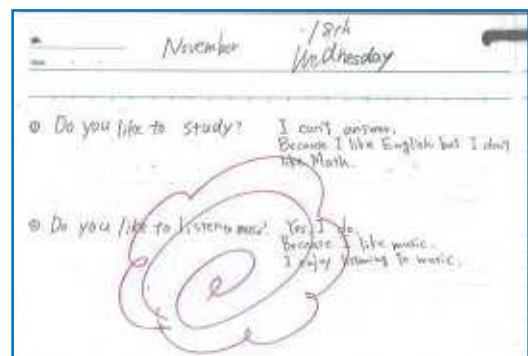 November 18th
Wednesday
Do you like to study? I can't answer.
Because I like English but I don't
like Math.
Do you like to listen to music? Yes, I do.
Because I like music.
I enjoy listening to music.